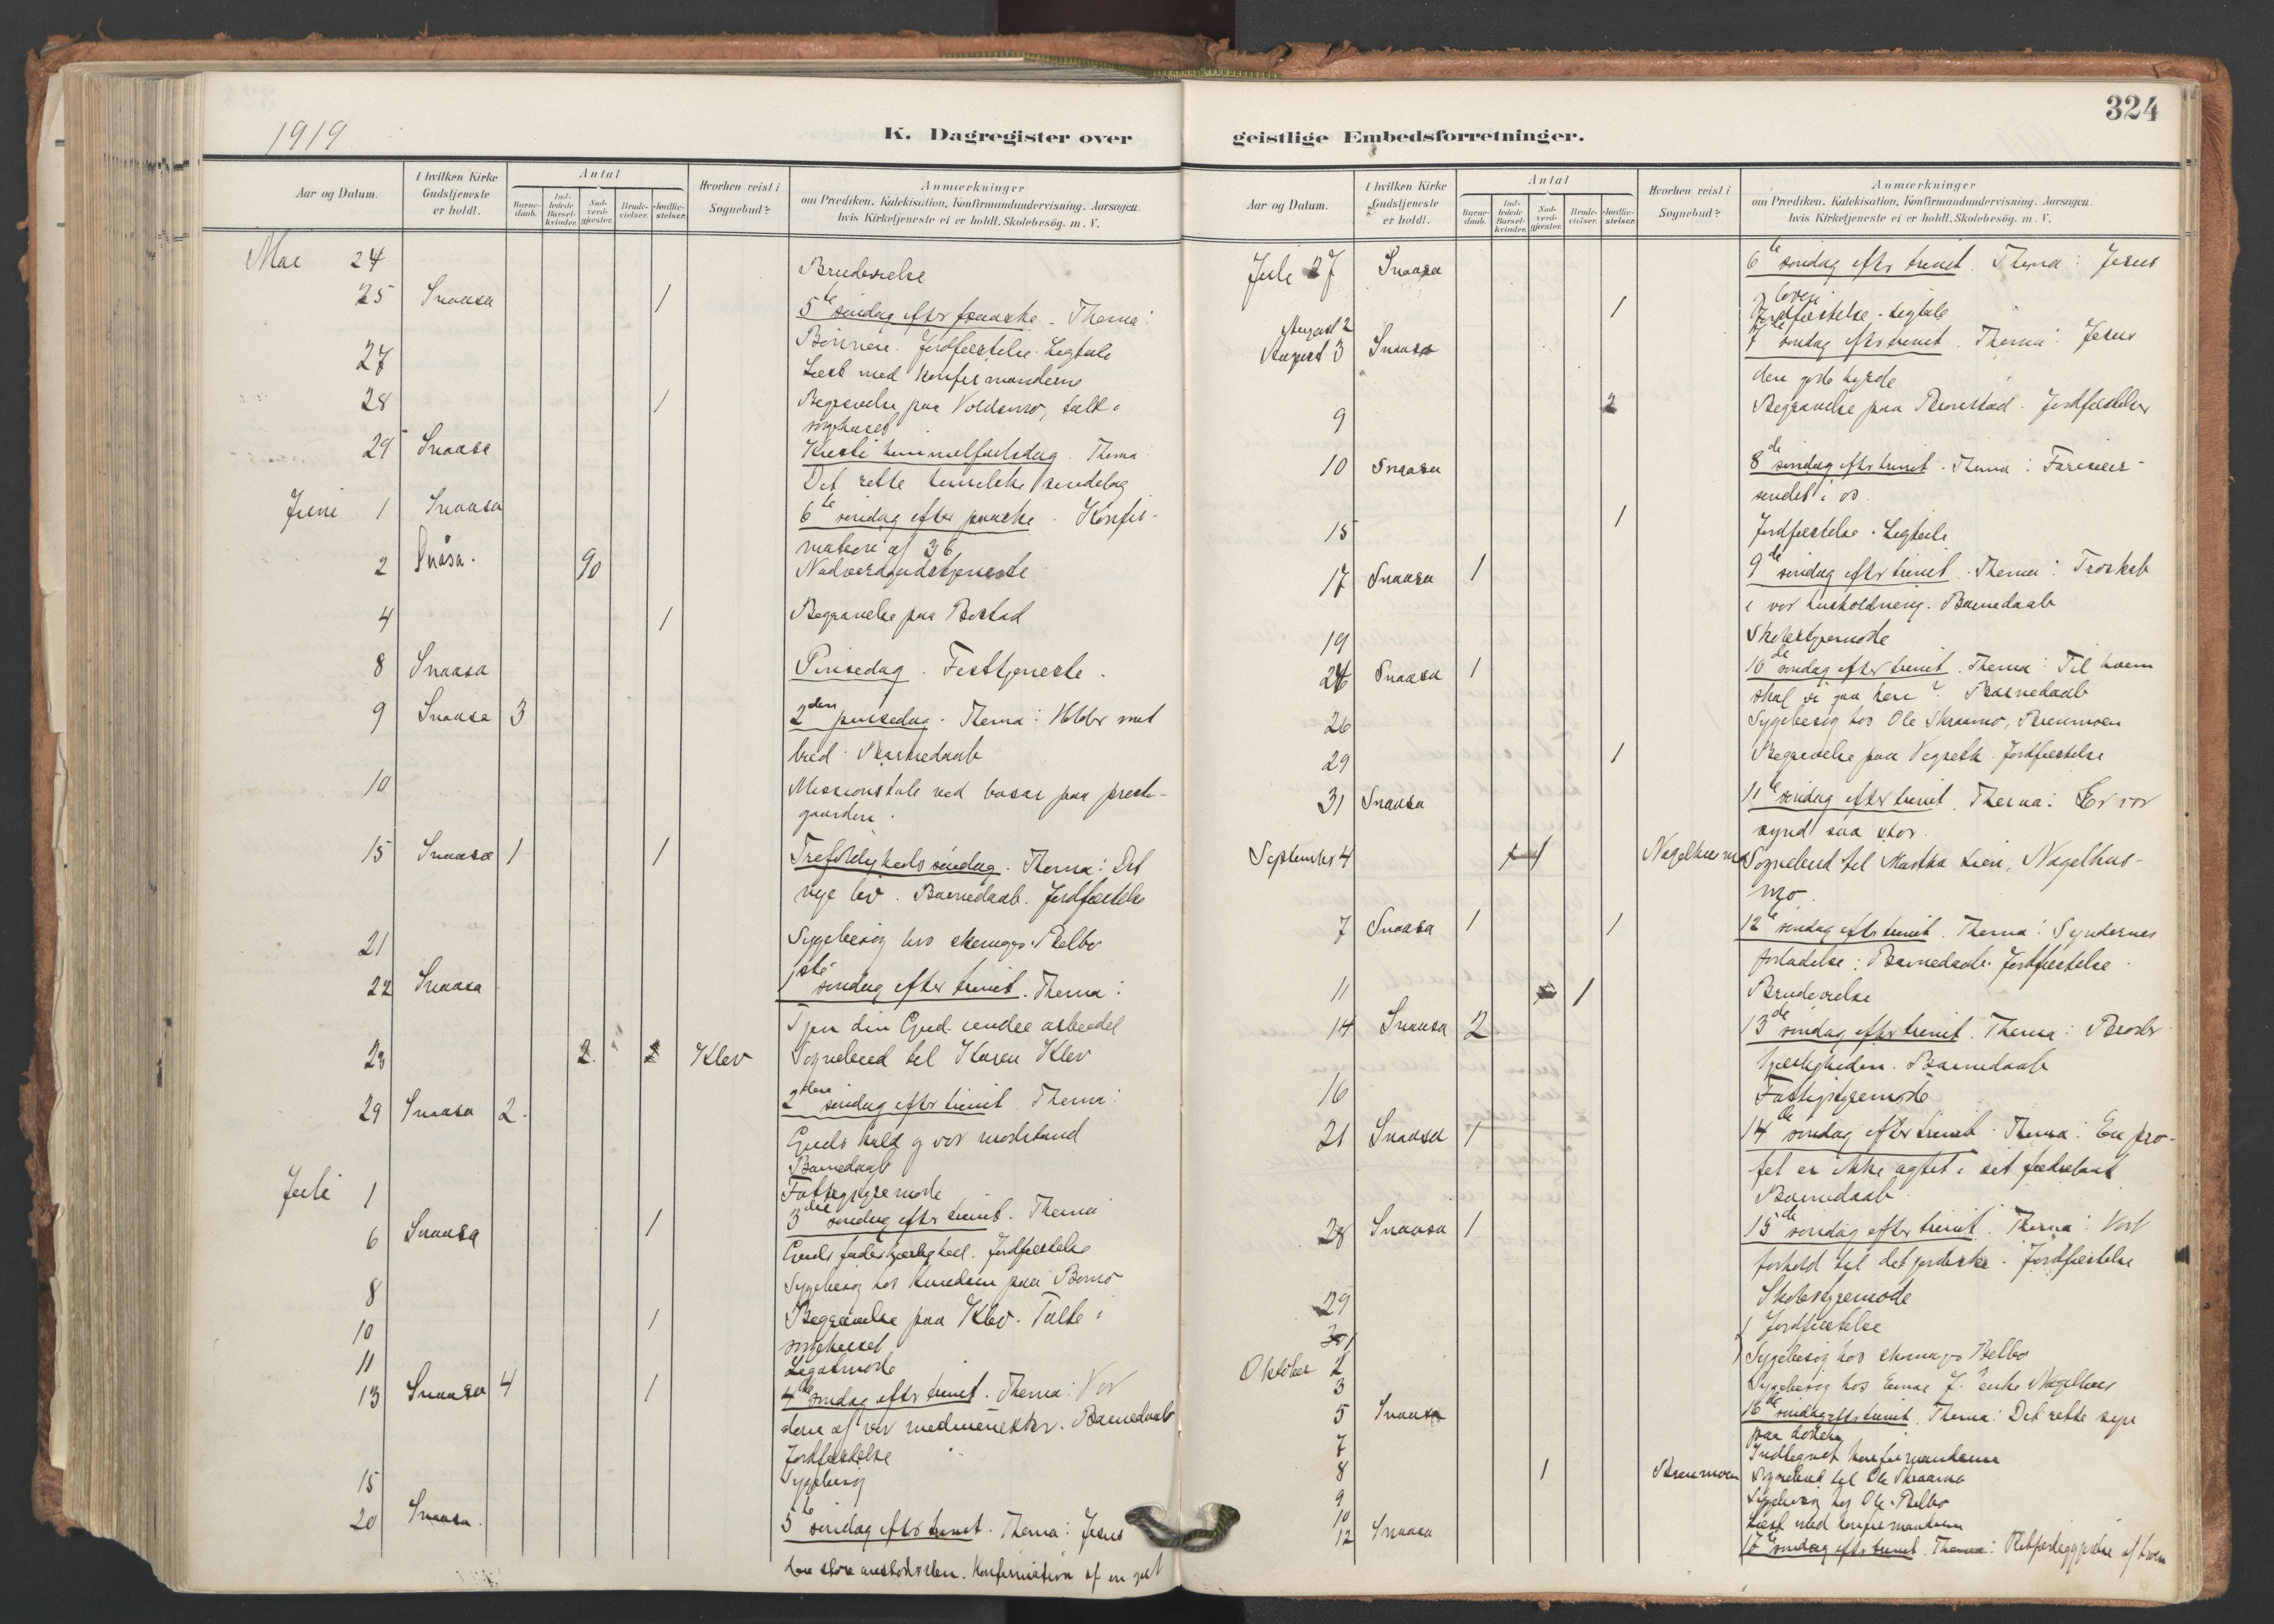 1919
K. Dagregister over
Aar og Datum.
I hvilken Kirke Gudstjeneste er holdt.
Antal
Barne-daab.
Ind-ledede Barsel-kvinder.
Nad-verd-gjester.
Brude-vielser.
Jordfæ-stelser.
Hvorhen reist i Sognebud?
Anmærkninger om Prædiken, Katekisation, Konfirmandundervisning, Aarsagen hvis Kirketjeneste ei er holdt, Skolebesøg. m. V.
Mai 24 Brudevielse
25 Snaasa 1 5te søndag efter paaske. Thema:
Bønnen. Jordfæstelse. Ligtale
27 Læst med konfirmanderne
28 1 Begravelse paa Voldsmo, talt i
sørgehuset
29 Snaasa Kristi himmelfartsdag. Thema:
Det rette himmelske sindelag
Juni 1 Snaasa 6te søndag efter paaske. Konfir-
mation af 36
2 Snåsa. 90 Nadverdgudstjeneste
4 1 Begravelse paa
8 Snaasa Pinsedag. Festtjeneste.
9 Snaasa 3 2den pinsedag. Thema:
Barnedaab
10 Missionstale ved basar paa preste-
gaarden.
15 Snaasa 1 1 Trefoldigheds søndag. Thema: Det
nye liv. Barnedaab. Jordfæstelse
21 Sygebesøg hos Belbo
22 Snaasa 1ste søndag efter trinit. Thema:
Tjen din Gud under arbeidet
23 2. Klev Sognebud til Karen Klev
29 Snaasa 2. 2den søndag efter trinit. Thema:
Guds kald og vor modstand
Barnedaab
Juli 1 Fattigstyremøde
6 Snaasa 1 3die søndag efter trinit. Thema
Guds faderkjærlighed. Jordfæstelse
8 Sygebesøg hos paa
10 1 Begravelse paa Klev. Talte i
sørgehuset
11 Legatmøde
13 Snaasa 4 1 4de søndag efter trinit. Thema: Vor
dom af vor medmennesker. Barnedaab
Jordfæstelse
15 Sygebesøg
20 Snaasa. 5te søndag efter trinit. Thema: Jesus
den store Konfirmation af en gut
324
geistlige Embedsforretninger.
Aar og Datum.
I hvilken Kirke Gudstjeneste er holdt.
Antal
Barne-daab.
Ind-ledede Barsel-kvinder.
Nad-verd-gjester.
Brude-vielser.
Jordfæ-stelser.
Hvorhen reist i Sognebud?
Anmærkninger om Prædiken, Katekisation, Konfirmandundervisning, Aarsagen hvis Kirketjeneste ei er holdt, Skolebesøg. m. V.
Juli 27 Snaasa 6te søndag efter trinit. Thema: Jesus
og loven
August 2 1 Jordfæstelse. Ligtale
August 3 Snaasa 7de søndag efter trinit. Thema: Jesus
den gode hyrde
9 2 Begravelse paa Jordfæstelse
10 Snaasa 8de søndag efter trinit. Thema: Farisæer-
sindet i os.
15 1 Jordfæstelse. Ligtale
17 Snaasa 1 9de søndag efter trinit. Thema: Troskab
i vor husholdning. Barnedaab
19 Skolestyremøde
24 Snaasa 1 10de søndag efter trinit. Thema: Til hvem
skal vi gaa hen? Barnedaab
26 Sygebesøg hos Ole Skraamo, Brenmoen
29 1 Begravelse paa Vegseth. Jordfæstelse
31 Snaasa 11te søndag efter trinit. Thema: Er vor
synd saa stor.
September 4 1 Nagelhusmo Sognebud til Martha Lien, Nagelhus-
mo.
7 Snaasa 1 1 12te søndag efter trinit. Thema: Syndernes
forladelse: Barnedaab. Jordfæstelse.
11 1 Brudevielse
14 Snaasa 2 13de søndag efter trinit. Thema: Broder-
kjærligheden. Barnedaab
16 Fattigstyremøde
21 Snaasa 1 14de søndag efter trinit. Thema: En pro-
fet er ikke agtet i sit fædreland
Barnedaab
28 Snaasa 1 15de søndag efter trinit. Thema: Vort
forhold til det jordiske. Jordfæstelse
29 Skolestyremøde
1 Jordfæstelse
Oktober 2 Sygebesøg hos Belbo
3 Sygebesøg hos enke Nagelhus
5 Snaasa 16de søndag efter trinit. Thema: Det rette syn
paa døden
7 Indtegnet konfirmanderne
8 1 Brenmoen Sognebud til Ole Skraamo
9 Sygebesøg hos Ole Belbo
10 Læst med konfirmanderne
12 Snaasa 17de søndag efter trinit. Thema: